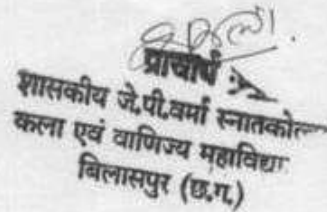 प्राचार्य
शासकीय जे.पी.वर्मा स्नातकोत्
कला एवं वाणिज्य महाविद्या
बिलासपुर (छ.ग.)